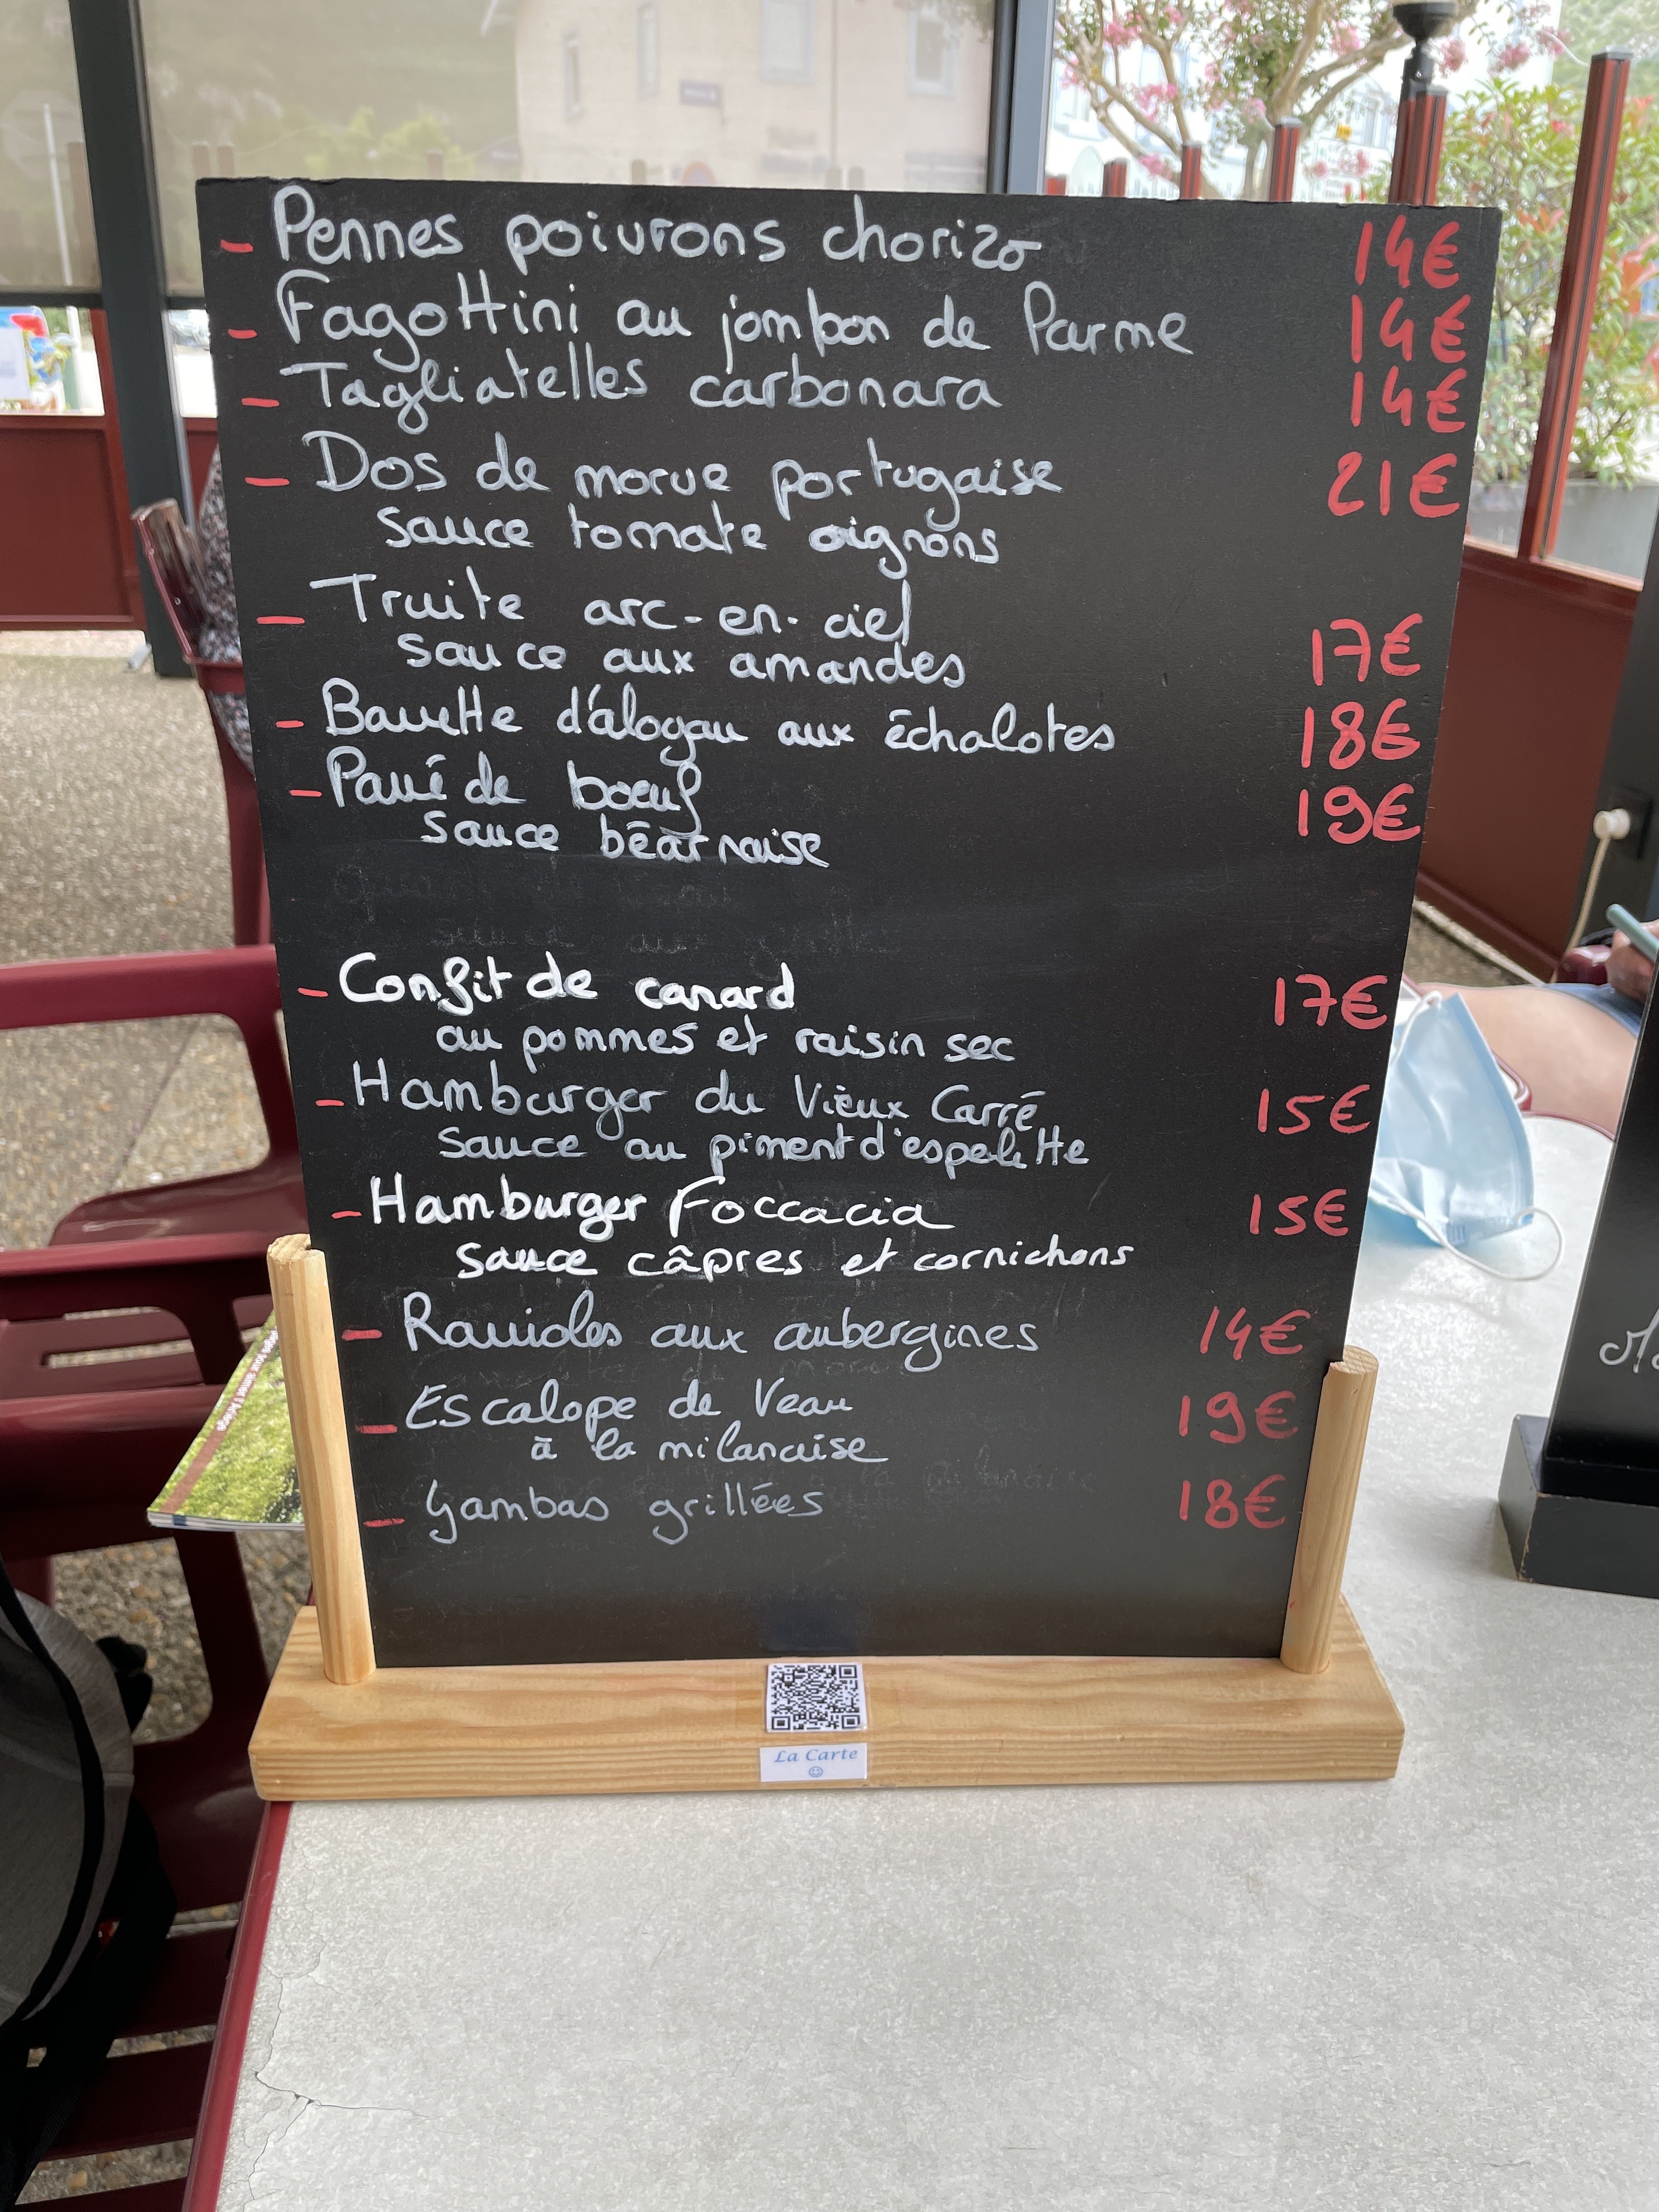 - Pennes poivrons chorizo 14€
- Fagottini au jambon de Parme 14€
- Tagliatelles carbonara 14€
- Dos de morue portugaise 21€
sauce tomate oignons
- Truite arc-en-ciel
sauce aux amandes 17€
- Bavette d'aloyau aux échalotes 18€
- Pavé de boeuf 19€
sauce béarnaise
- Confit de canard 17€
au pommes et raisin sec
- Hamburger du Vieux Carré 15€
sauce au piment d'espelette
- Hamburger Foccacia 15€
sauce câpres et cornichons
- Ravioles aux aubergines 14€
- Escalope de Veau 19€
à la milanaise
- Gambas grillées 18€
La Carte